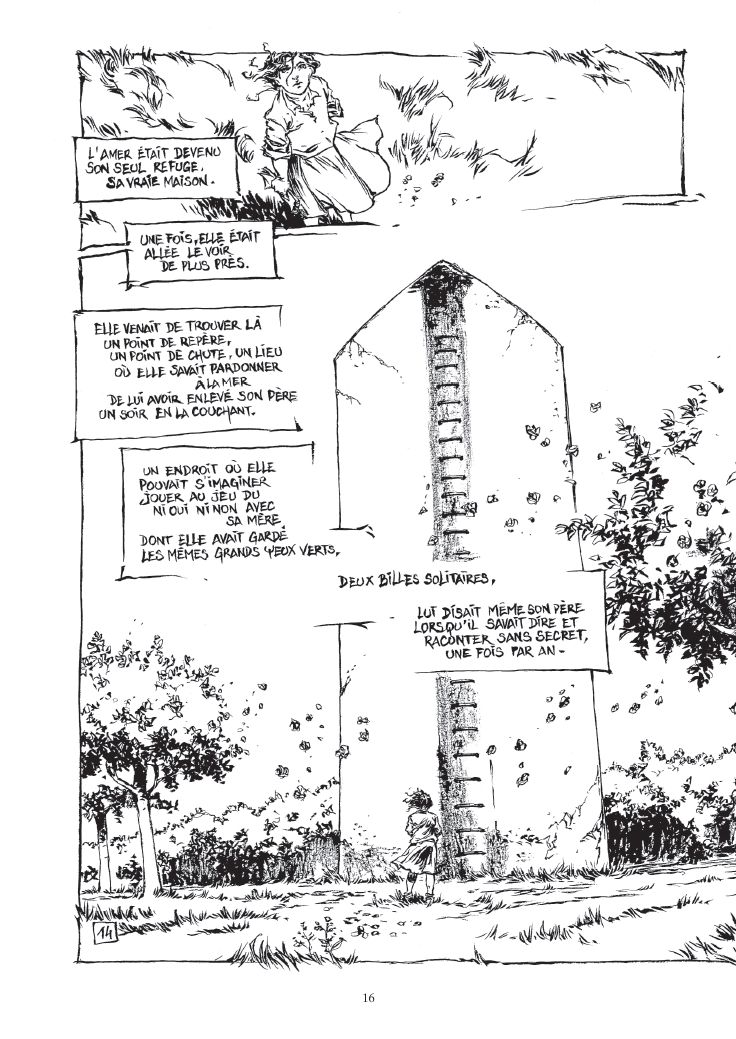 L'AMER ÉTAIT DEVENU
SON SEUL REFUGE,
SA VRAIE MAISON.
UNE FOIS, ELLE ÉTAIT
ALLÉE LE VOIR
DE PLUS PRÈS.
ELLE VENAIT DE TROUVER LÀ
UN POINT DE REPÈRE,
UN POINT DE CHUTE, UN LIEU
OÙ ELLE SAVAIT PARDONNER
À LA MER
DE LUI AVOIR ENLEVÉ SON PÈRE
UN SOIR EN LA COUCHANT.
UN ENDROIT OÙ ELLE
POUVAIT S'IMAGINER
JOUER AU JEU DU
NI OUI NI NON AVEC
SA MÈRE,
DONT ELLE AVAIT GARDÉ
LES MÊMES GRANDS YEUX VERTS,
DEUX BILLES SOLITAIRES,
LUI DISAIT MÊME SON PÈRE
LORSQU'IL SAVAIT DIRE ET
RACONTER SANS SECRET,
UNE FOIS PAR AN-
14
16